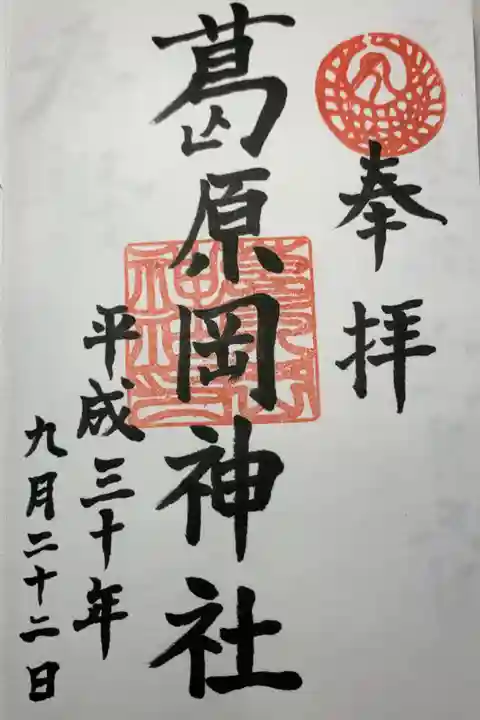 奉拝
葛原岡神社
平成三十年
九月二十二日